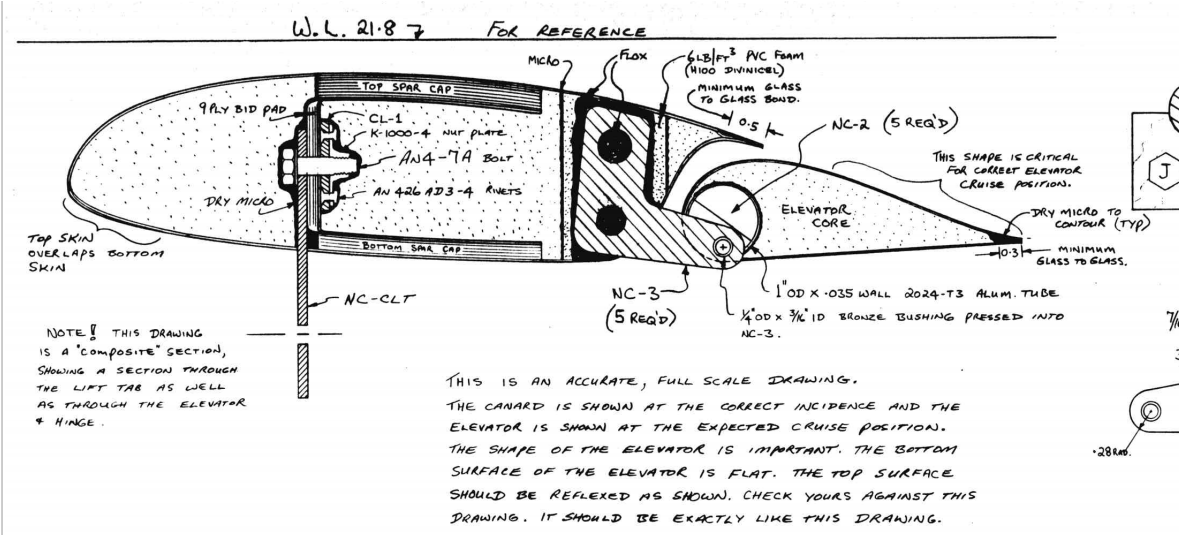 W.L. 21.87 FOR REFERENCE
MICRO
FLOX
6LB/FT³ PVC FOAM
(H100 DIVINICEL)
MINIMUM GLASS
TO GLASS BOND.
0.5
TOP SPAR CAP
9 PLY BID PAD
CL-1
K-1000-4 NUT PLATE
AN4-7A BOLT
AN 426 AD3-4 RIVETS
DRY MICRO
NC-2 (5 REQ'D)
THIS SHAPE IS CRITICAL
FOR CORRECT ELEVATOR
CRUISE POSITION.
J
ELEVATOR
CORE
DRY MICRO TO
CONTOUR (TYP)
TOP SKIN
OVERLAPS BOTTOM
SKIN
BOTTOM SPAR CAP
0.3
MINIMUM
GLASS TO GLASS.
NC-CLT
NC-3
(5 REQ'D)
1" OD X .035 WALL 2024-T3 ALUM. TUBE
1/4" OD X 3/16" ID BRONZE BUSHING PRESSED INTO
NC-3.
NOTE! THIS DRAWING
IS A "COMPOSITE" SECTION,
SHOWING A SECTION THROUGH
THE LIFT TAB AS WELL
AS THROUGH THE ELEVATOR
& HINGE.
THIS IS AN ACCURATE, FULL SCALE DRAWING.
THE CANARD IS SHOWN AT THE CORRECT INCIDENCE AND THE
ELEVATOR IS SHOWN AT THE EXPECTED CRUISE POSITION.
THE SHAPE OF THE ELEVATOR IS IMPORTANT. THE BOTTOM
SURFACE OF THE ELEVATOR IS FLAT. THE TOP SURFACE
SHOULD BE REFLEXED AS SHOWN. CHECK YOURS AGAINST THIS
DRAWING. IT SHOULD BE EXACTLY LIKE THIS DRAWING.
.28 RAD.